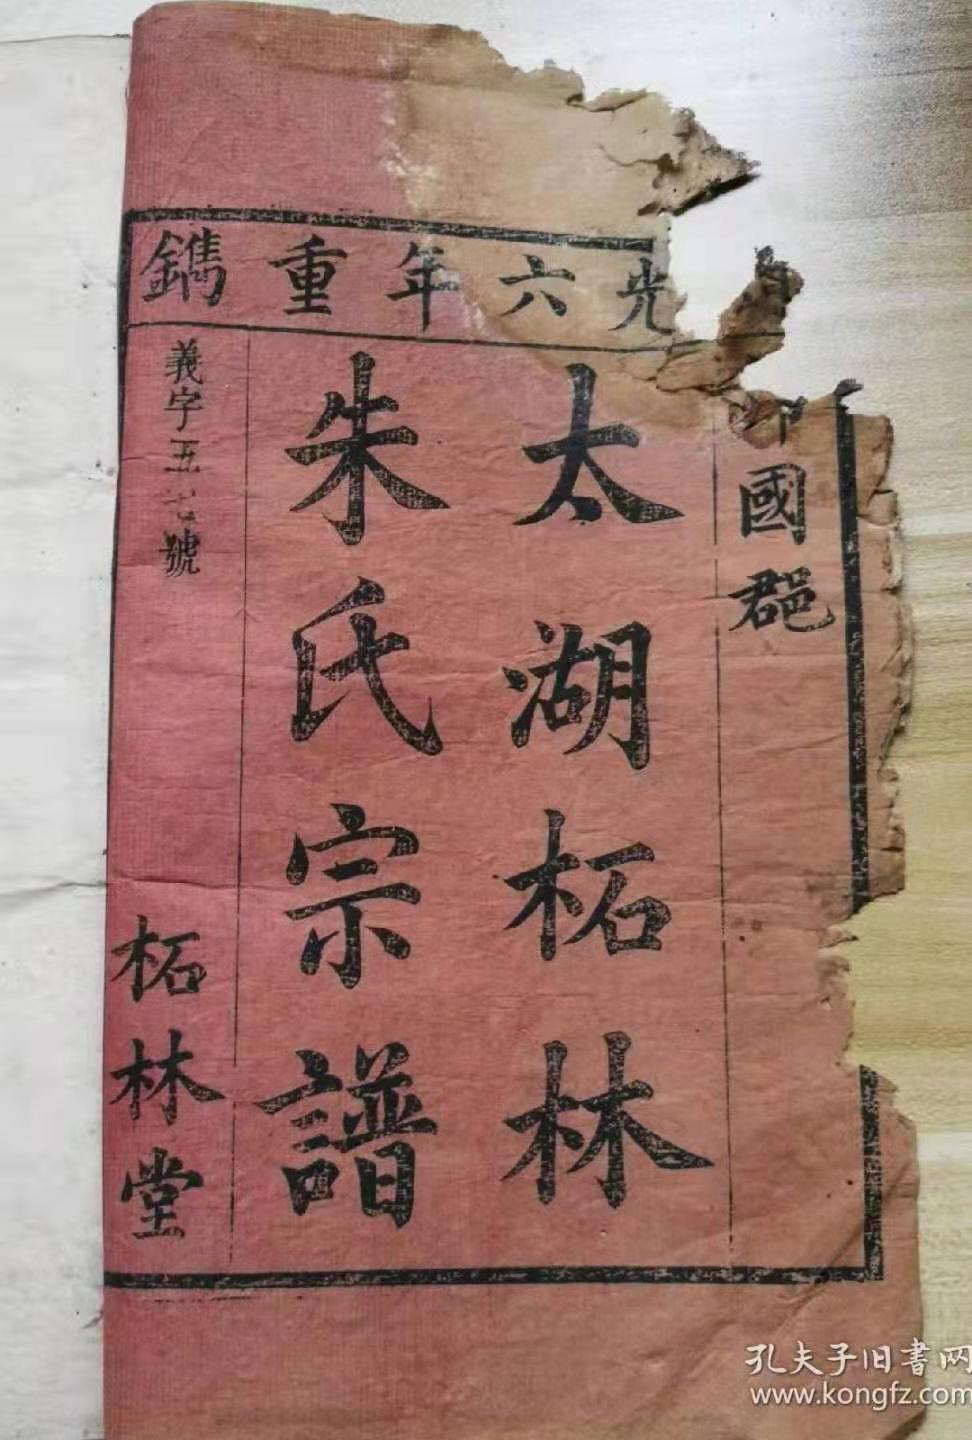 光六年重鐫
國郡
太湖柘林
朱氏宗譜
義字五 號
柘林堂
孔夫子旧書网
www.kongfz.com